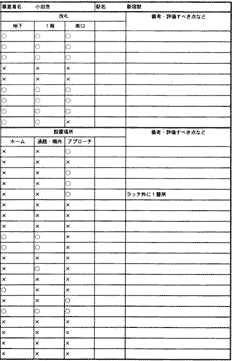 事業者名 小田急 駅名 新宿駅
改札 備考・評価すべき点など
地下 1階 南口
○ ○ ○
○ ○ ○
○ ○ ○
× × ×
× × ×
○ ○ ○
○ ○ ○
○ ○ ○
○ ○ ×
設置場所 備考・評価すべき点など
ホーム 通路・構内 アプローチ
× × ○
× × ×
× × ○
× × ○
× × ○ ラッチ外に1箇所
× × ○
× × ×
× × ×
○ ○ ×
× ○ ×
× ○ ×
× ○ ×
× × ×
○ × ×
× × ○
○ ○ ○
× × ×
× × ×
× × ×
× × ×